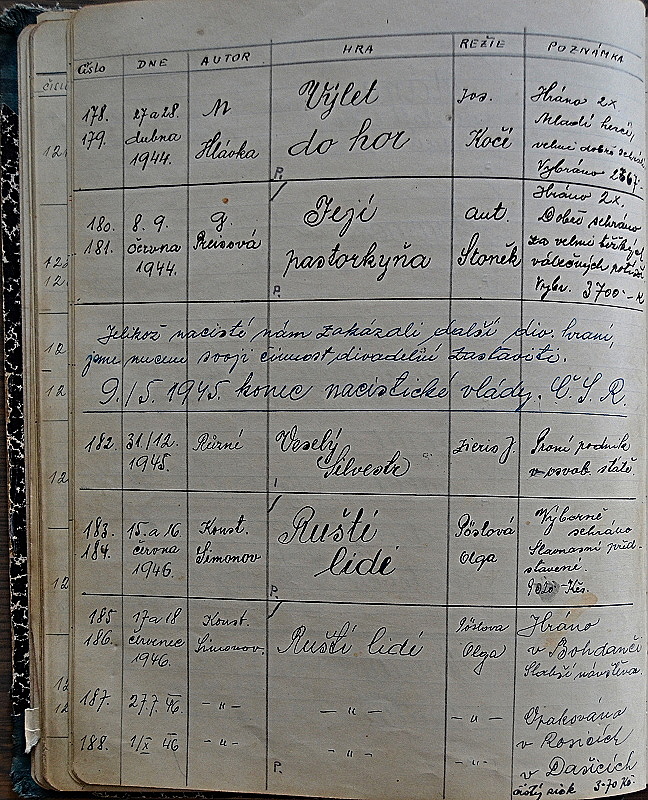 Číslo DNE AUTOR HRA REŽIE POZNÁMKA
178. 27 a 28. M Výlet Jos. Hráno 2x
179. dubna Hlávka do hor Kočí Mladí herci,
1944. velmi dobře
Vybráno
P.
180. 8. 9. G. Její aut. Hráno 2x.
181. června Preissová pastorkyňa Stoněk Dobře sehráno
1944. za velmi těžkých
válečných
P. Vybr. 3700 - K
Jelikož nacisté nám zakázali další div. hraní,
jsme nuceni svoji činnost divadelní zastaviti.
9./5. 1945 konec nacistické vlády. Č. S. R.
182. 31/12. Různé Veselý J. První podnik
1945. Silvestr v osvob. státě.
183. 15. a 16. Konst. Ruští Pöslová Výborně
184. června Simonov lidé Olga sehráno
1946. Slavnostní před-
stavení.
P. Kčs.
185 17 a 18 Konst. Ruští lidé Pöslova Hráno
186. červenec Simonov. Olga v Bohdanči
1946. Slabší návštěva.
187. 27.7. 46. - " - - " - - " - Opakováno
v Rosicích
188. 1/X 46 - " - - " - - " - v Dašicích
P. čistý zisk 370 Kč.